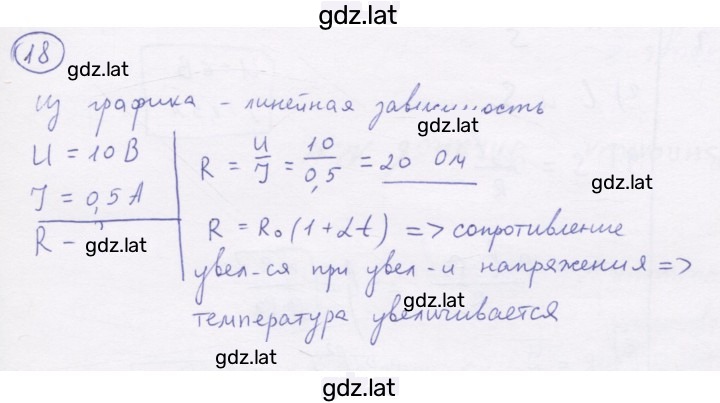 gdz.lat
18
gdz.lat
Из графика – линейная зависимость
gdz.lat
U = 10 В
R = U/I = 10/0,5 = 20 Ом
gdz.lat
I = 0,5 А
R – ?
gdz.lat
R = R₀(1+αt) => сопротивление
увел-ся при увел-и напряжения =>
gdz.lat
температура увеличивается
gdz.lat
gdz.lat